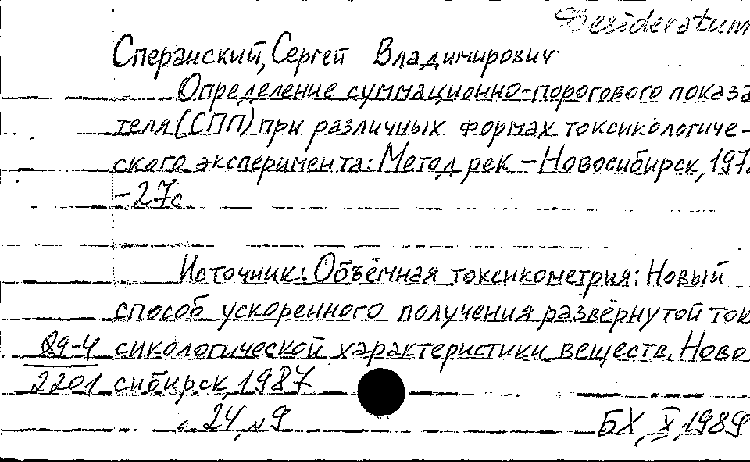 Desideratum
Сперанский, Сергей Владимирович
Определение суммационно-порогового показа
теля (СПП) при различных формах токсикологиче-
ского эксперимента: Метод рек – Новосибирск, 197
– 27с
Источник: Объёмная токсикометрия: Новый
способ ускоренного получения развёрнутой ток
сикологической характеристики веществ. Ново
сибирск, 1987
89-4
2201
с. 24, №9
БХ, X, 1989